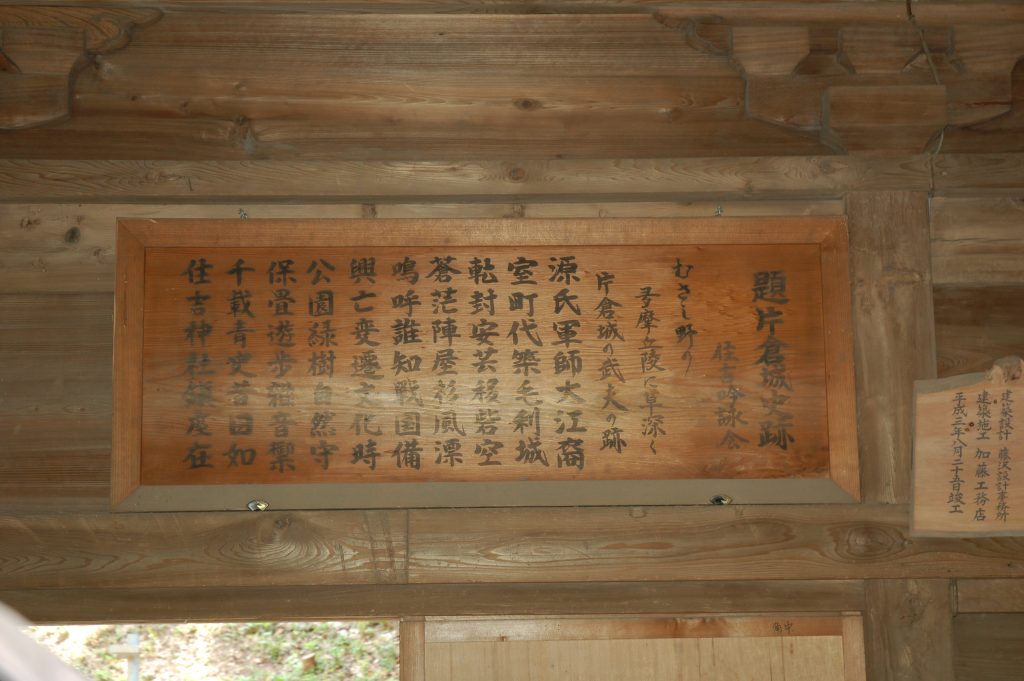 題片倉城史跡
住吉吟詠会
むさし野の
多摩丘陵に草深く
片倉城の武夫の跡
源氏軍師大江裔
室町代築毛利城
乾封安芸移砦空
蒼茫陣屋杉風漂
嗚呼誰知戦国備
興亡変遷文化時
公園緑樹自然守
保畳遊歩雑音禦
千載青史昔日如
住吉神社鎮座在
建築設計 藤沢設計事務所
建築施工 加藤工務店
平成三年八月二十五日竣工